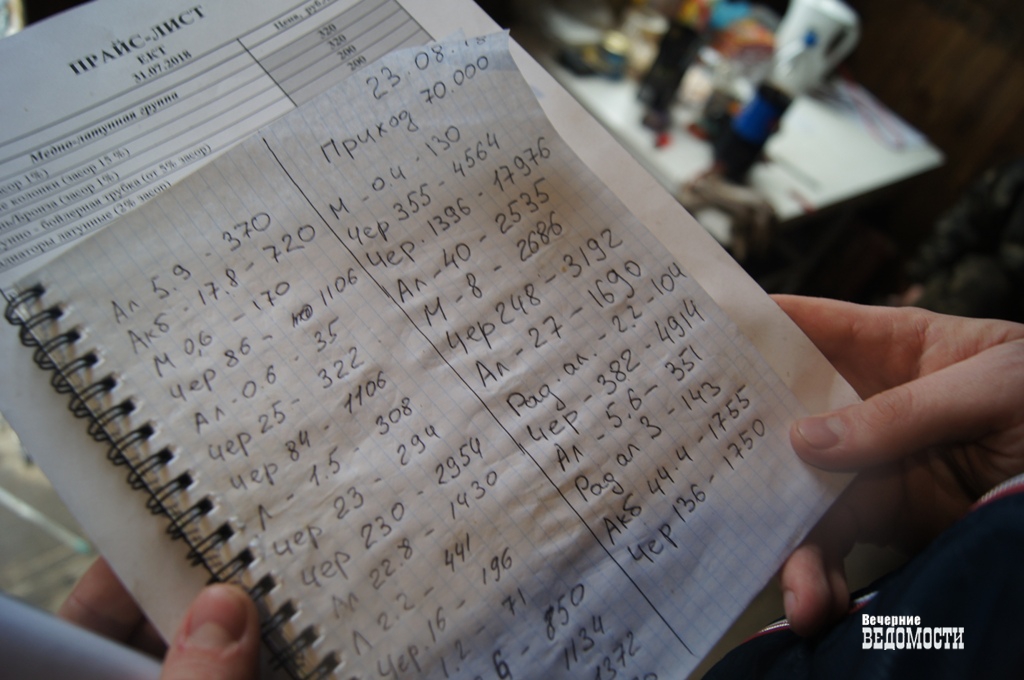 ПРАЙС-ЛИСТ
ЕКТ
31.07.2018
Цена, руб
Медно-латунная группа
320
320
200
(засор 15 %)
колонки (засор 1%)
бронза (засор 1%)
- бойлерная трубка (от 5% засор)
латунные (2% засор)
Ал 5.9 - 370
Акб - 17.8 - 720
М 0,6 - 170
Чер 86 - 1106
Ал - 0.6 - 35
Чер 25 - 322
Чер 84 - 1106
Л - 1.5 - 308
Чер 23 - 294
Чер 230 - 2954
Ал 22.8 - 1430
Л - 2.2 - 441
Чер. 16 - 196
1.2 - 71
850
1134
1372
23.08.18
Приход 70.000
М - 0.4 - 130
Чер 355 - 4564
Чер. 1396 - 17976
Ал - 40 - 2535
М - 8 - 2686
Чер 248 - 3192
Ал - 27 - 1690
Рад. ал. - 2.2 - 104
Чер - 382 - 4914
Ал - 5.6 - 351
Рад ал 3 - 143
Акб 44.4 - 1755
Чер 136 - 1750
Вечерние
ВЕДОМОСТИ